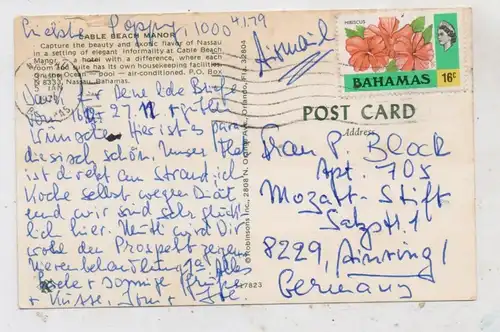 Liebste Peggy, 1000 4/1.79
CABLE BEACH MANOR
Capture the beauty and exotic flavor of Nassau
in a setting of elegant informality at Cable Beach
Manor — a hotel with a difference, where each
room and suite has its own housekeeping facilities
on the Ocean — pool — air-conditioned. P.O. Box
N 8333, Nassau, Bahamas.
Dank für Deine liebe Brief
vom 16. + 27.11 + guten
Wünsche. Hier ist es para-
diesisch schön. Unser
ist direkt am Strand, ich
koche selbst wegen Diät
und wir sind sehr glück-
lich hier. wird Dir
wohl den Prospekt zeigen
Alles
Liebe + innige Grüße
+ Küsse, +
Airmail
HIBISCUS
BAHAMAS 16c
POST CARD
Address
© Robinsons Inc., 2808 N. Orange Ave., Orlando, Fla. 32804
17823
Frau P. Block
Apt. 705
Mozart-Stift
Salzstr. 1
8229, Ainring /
Germany